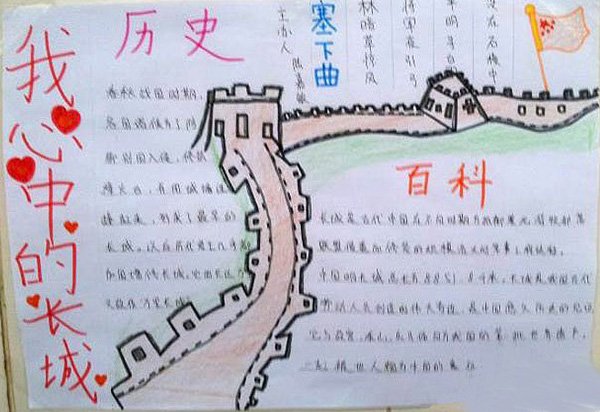 我心中的长城
历史
塞下曲
林暗草惊风
将军夜引弓
平明寻白羽
没在石棱中
春秋战国时期,
各国诸侯为了防
御别国入侵,修筑
烽火台,并用城墙连
接起来,形成了最早的
长城。以后历代君王几乎都
加固增修长城。
万里长城
百科
长城是古代中国在不同时期为抵御塞北游牧部落
联盟侵袭而修筑的规模浩大的军事工程
中国明长城总长为8851.8千米,长城是我国古代
劳动人民创造的伟大奇迹,是中国悠久历史的见证
它与故宫,兵马俑同为我国的第一批世界遗产,
一起被世人视为中国的象征